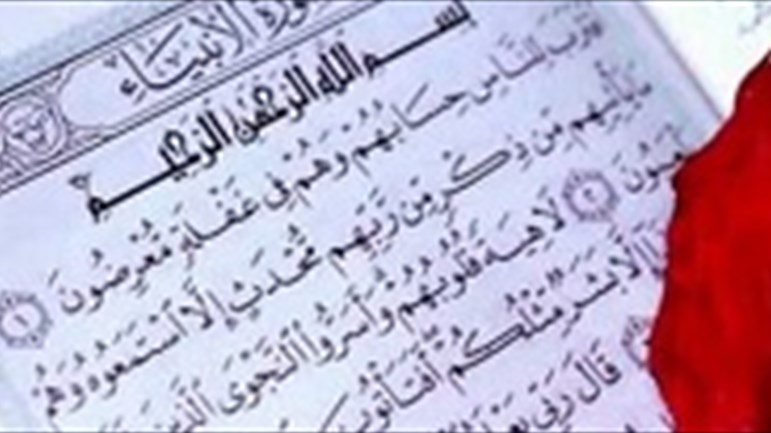 سورة الأنبياء
بسم الله الرحمن الرحيم
ٱقۡتَرَبَ لِلنَّاسِ حِسَابُهُمۡ وَهُمۡ فِي غَفۡلَةٖ مُّعۡرِضُونَ ١
مَا يَأۡتِيهِم مِّن ذِكۡرٖ مِّن رَّبِّهِم مُّحۡدَثٍ إِلَّا ٱسۡتَمَعُوهُ وَهُمۡ
يَلۡعَبُونَ ٢ لَاهِيَةٗ قُلُوبُهُمۡۗ وَأَسَرُّواْ ٱلنَّجۡوَى ٱلَّذِينَ
إِلَّا بَشَرٞ مِّثۡلُكُمۡۖ أَفَتَأۡتُونَ
قَالَ رَبِّي يَعۡلَمُ